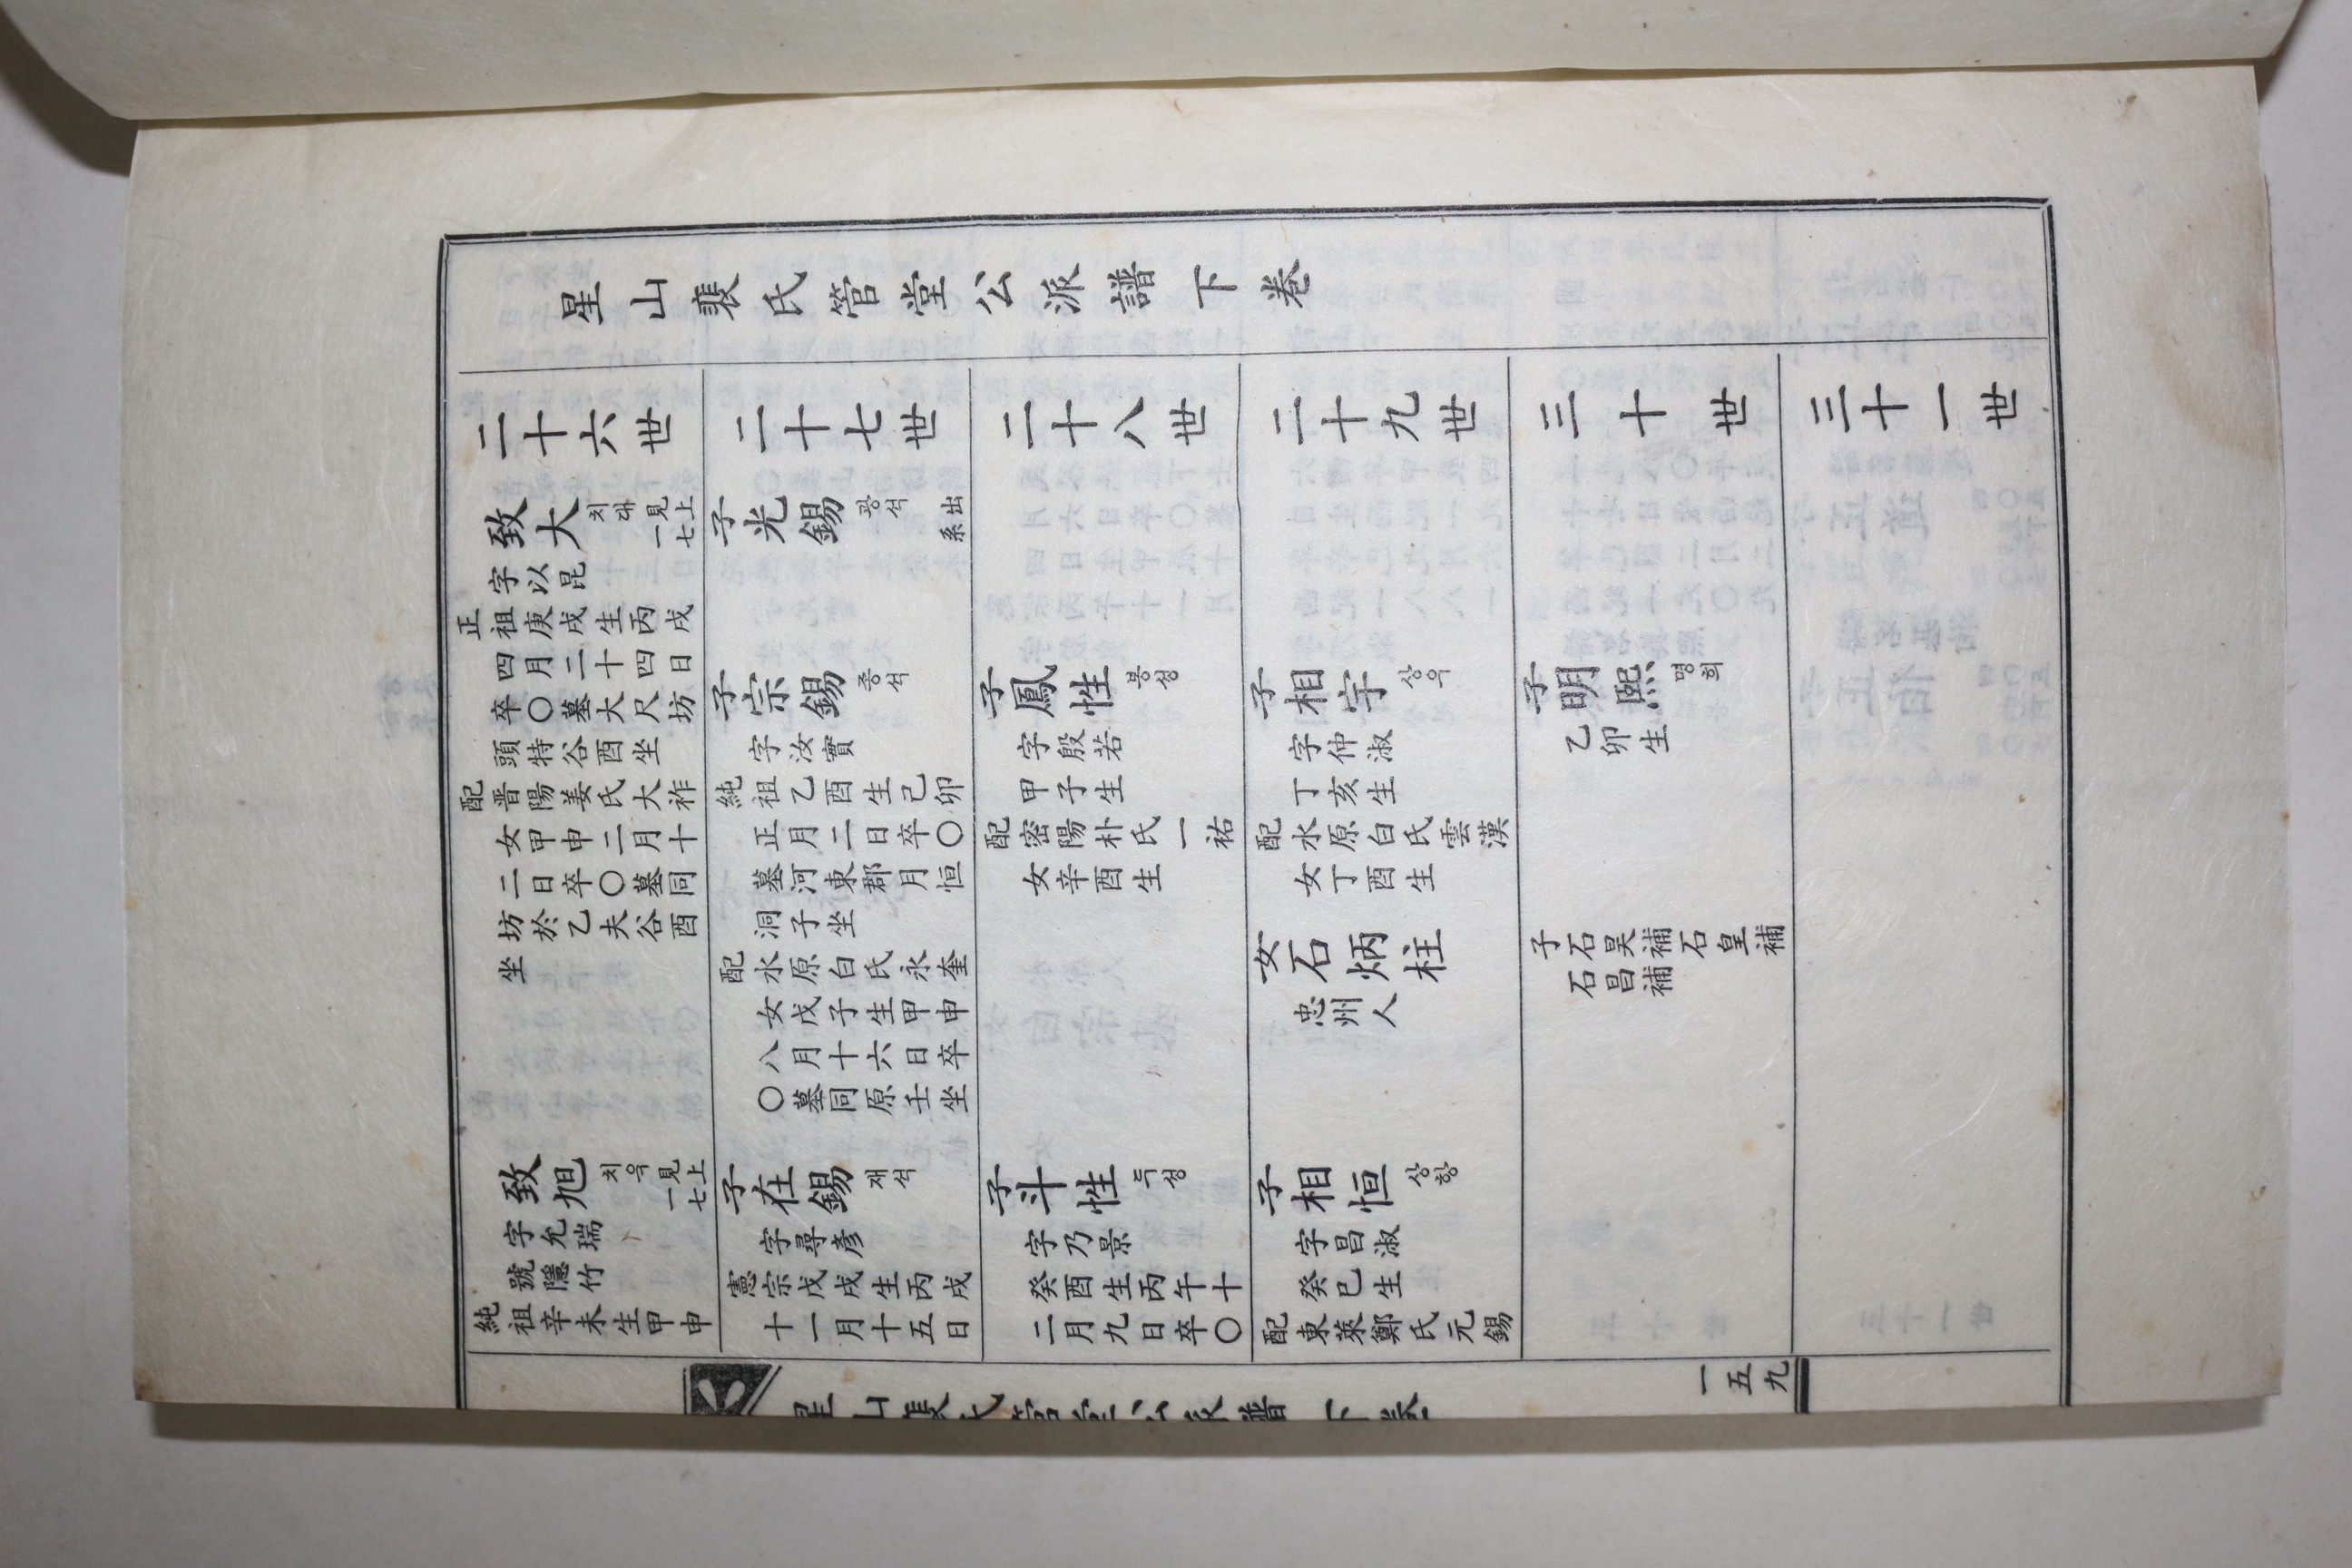 星山裵氏管堂公派譜下卷
二十六世
致大 치대 見上一七
字以昆
正祖庚戌生丙戌
四月二十四日
卒〇墓大尺坊
頭特谷酉坐
配晋陽姜氏大祚
女甲申二月十
二日卒〇墓同
坊於乙夫谷酉
坐
致旭 치욱 見上一七
字允瑞
號隱竹
純祖辛未生甲申
二十七世
子光錫 광석 出系
子宗錫 종석
字汝實
純祖乙酉生己卯
正月二日卒〇
墓河東郡月恒
洞子坐
配水原白氏永奎
女戊子生甲申
八月十六日卒
〇墓同原壬坐
子在錫 재석
字尋彦
憲宗戊戌生丙戌
十一月十五日
二十八世
子鳳性 봉성
字殷若
甲子生
配密陽朴氏一祐
女辛酉生
子斗性 두성
字乃景
癸酉生丙午十
二月九日卒〇
二十九世
子相宇 상우
字仲淑
丁亥生
配水原白氏雲漢
女丁酉生
女石炳柱
忠州人
子相恒 상항
字昌淑
癸巳生
配東萊鄭氏元錫
三十世
子明熙 명희
乙卯生
子石昊補石皇補
石昌補
三十一世
星山裵氏管堂公派譜 下卷
一五九